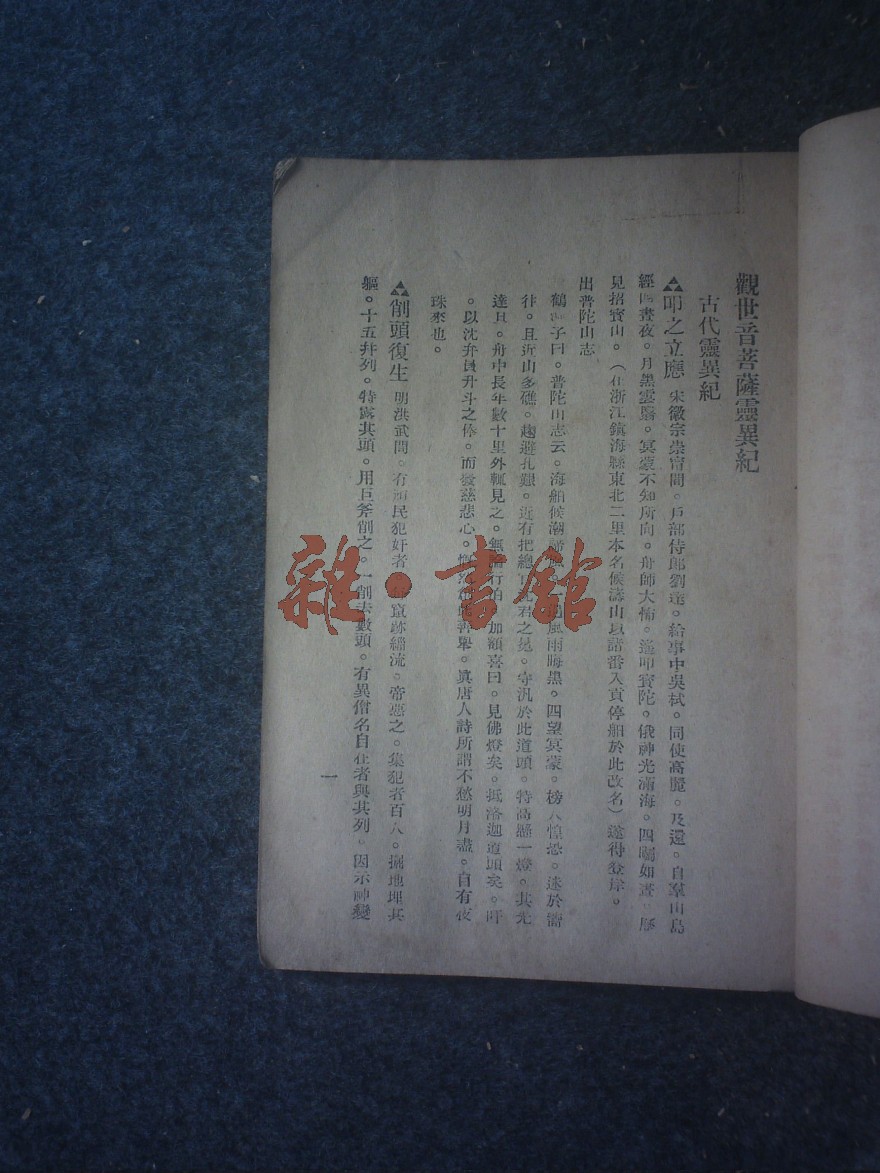 觀世音菩薩靈異紀
古代靈異紀
叩之立應 宋徽宗崇甯間。戶部侍郎劉逵。給事中吳栻。同使高麗。及還。自羣山島
經四晝夜。月黑雲翳。冥蒙不知所向。舟師大怖。遙叩寶陀。俄神光滿海。四矚如晝。歷
見招寶山。（在浙江鎮海縣東北二里本名候濤山以諸番入貢停舶於此改名）遂得登岸。
出普陀山志
鶴 子曰。普陀山志云。海舶候潮 風雨晦黑。四望冥蒙。榜人惶恐。迷於嚮
往。且近山多礁。趨避孔艱。近有把總 君之 。守汛於此道頭。特高懸一燈。其光
達旦。舟中長年數十里外輒見之。無論行泊。加額喜曰。見佛燈矣。抵洛迦道頭矣。吁
。以沈弁員升斗之俸。而發慈悲心。 善舉。眞唐人詩所謂不愁明月盡。自有夜
珠來也。
削頭復生 明洪武間。有 民犯奸者 竄跡緇流。帝惡之。集犯者百人。掘地埋其
軀。十五井列。特露其頭。用巨斧削之。一削去數頭。有異僧名自在者與其列。因示神變
一
雜·書館